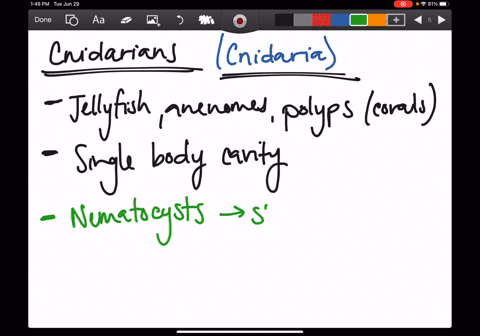 1:49 PM Tue Jun 29
81%
Done Aa 5
Cnidarians (Cnidaria)
- Jellyfish, anenomes, polyps (corals)
- Single body cavity
- Nematocysts → s